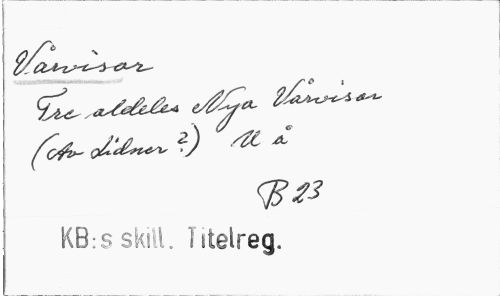 Vårvisor
Tre aldeles Nya Vårvisor
(Av Lidner?) U å
B 23
KB:s skill. Titelreg.